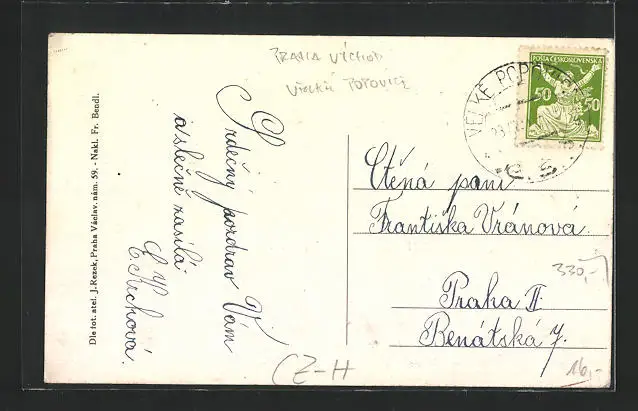 PRAHA VÝCHOD
VELKÉ POPOVICE
POŠTA ČESKOSLOVENSKÁ
50 50
VELKÉ POPOVICE
Č. S.
Dle fot. atel. J. Rezek, Praha Václav. nám. 59. - Nakl. Fr. Bendl.
Srdečný pozdrav Vám
a slečně zasílá
Kuchová.
Ctěná paní
Františka Vránová.
Praha II
Benátská 7.
330,-
16,-
CZ-H